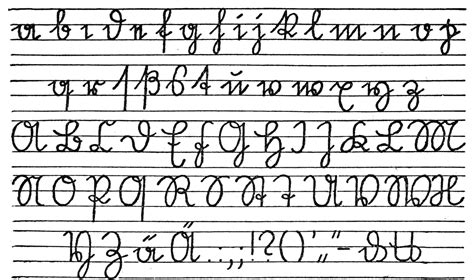 a b c d e f g h i j k l m n o p
q r ſ ß s t ŭ v w x y z
A B C D E F G H I J K L M
N O P Q R S St T U V W X
Y Z ű A̋ . : , ; ! ? ( ) ' „ " -